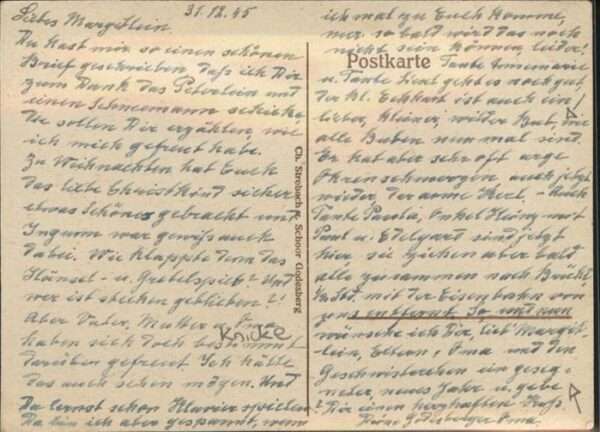 31.12.45
Liebes Margitlein.
Du hast mir so einen schönen
Brief geschrieben, daß ich Dir
zum Dank das Peterlein und
einen Schneemann schicke.
Die sollen Dir erzählen, wie
ich mich gefreut habe.
Zu Weihnachten hat Euch
das liebe Christkind sicher
etwas Schönes gebracht und
Ingum war gewiß auch
dabei. Wie klappte denn das
Hänsel- u. Gretelspiel? Und
wer ist stecken geblieben?!
Aber Vater, Mutter u. Oma
haben sich doch bestimmt
darüber gefreut. Ich hätte
das auch sehen mögen. Und
Du lernst schon Klavier spielen?
Da bin ich aber gespannt, wenn
Knicke
Ch. Strobach & Schoor Godesberg
Postkarte
ich mal zu Euch komme,
nur so bald wird das noch
nicht sein können, leider!
Tante Annemarie
u. Tante Liesel geht es noch gut,
der kl. Eckhart ist auch ein
lieber, kleiner, wilder Bub, wie
alle Buben nun mal sind.
Er hat aber sehr oft arge
Ohrenschmerzen auch jetzt
wieder, der arme Kerl. - Auch
Tante Paula, Onkel Heinz mit
Paul u. Edelgard sind jetzt
hier sie ziehen aber bald
alle zusammen nach Brühl
Std. mit der Eisenbahn von
uns entfernt. So und nun
wünsche ich Dir, lieb' Margit-
lein, Eltern, Oma und den
Geschwisterchen ein geseg-
netes, neues Jahr u. gebe
Dir einen herzhaften Kuß.
Deine Godesberger Oma.